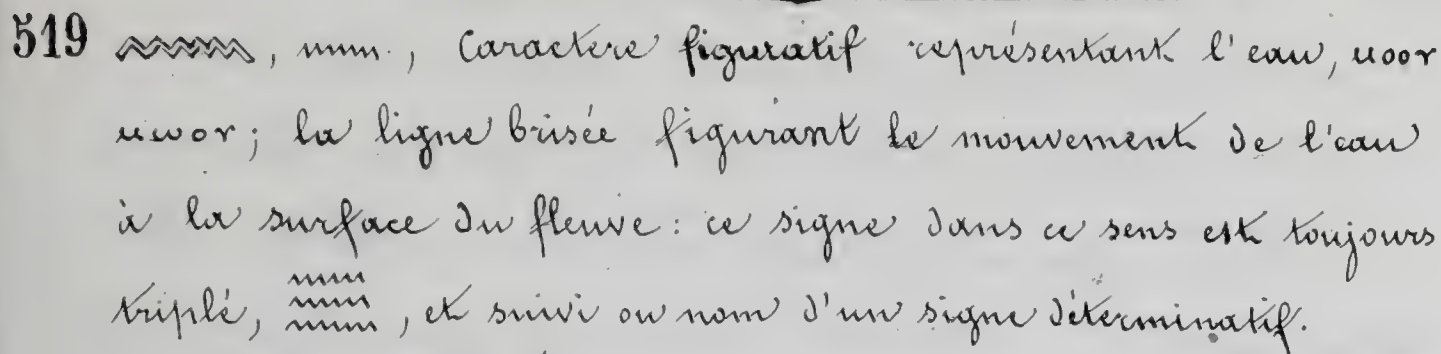 519 𓈖, 𓈖., Caractere figuratif représentant l'eau, ⲙⲟⲟⲩ
ⲙⲱⲟⲩ; la ligne brisée figurant le mouvement de l'eau
à la surface du fleuve: ce signe dans ce sens est toujours
triplé, 𓈗, et suivi ou nom d'un signe déterminatif.